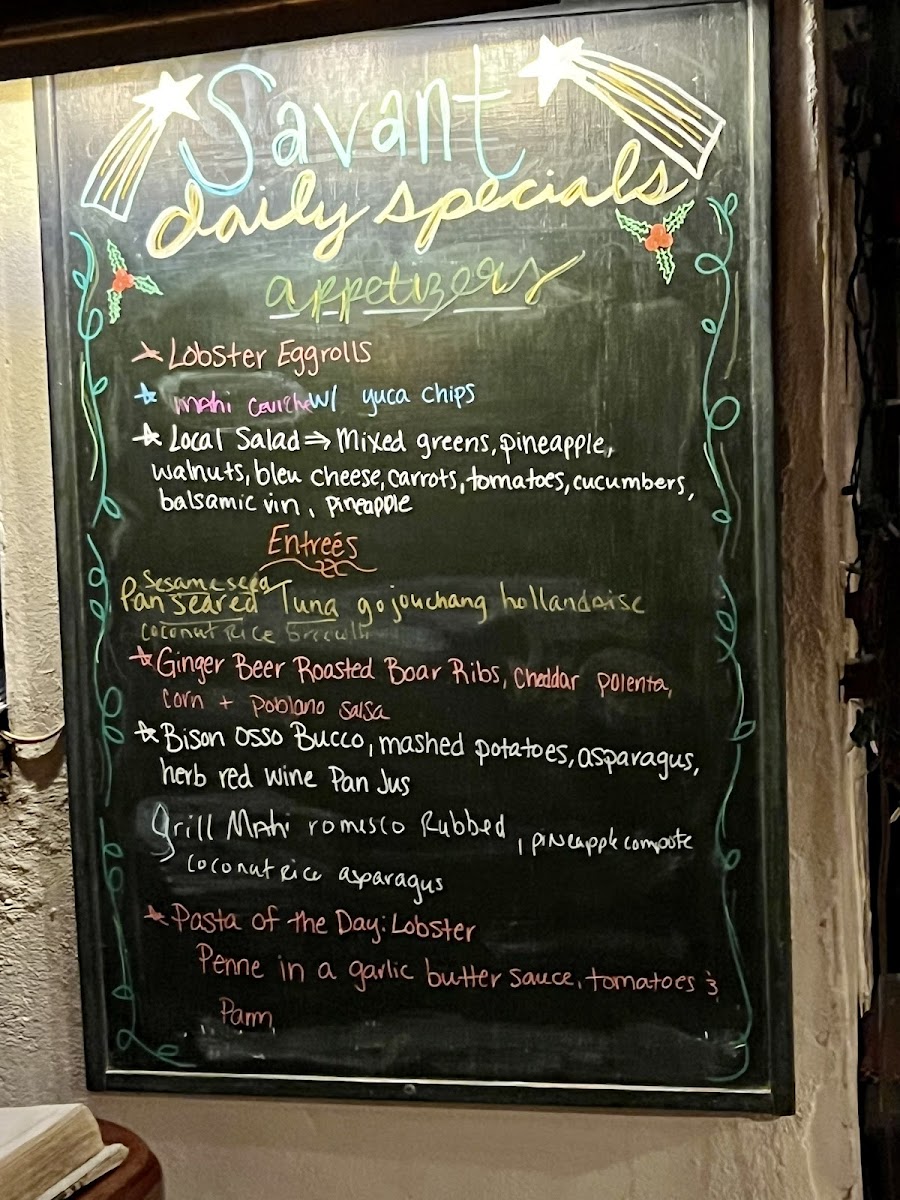 Savant
daily specials
appetizers
Lobster Eggrolls
Mahi Ceviche w/ yuca chips
Local Salad ⇒ Mixed greens, pineapple,
walnuts, bleu cheese, carrots, tomatoes, cucumbers,
balsamic vin, pineapple
Entreés
Sesame seed
Pan Seared Tuna gojouchang hollandaise
coconut Rice
Ginger Beer Roasted Boar Ribs, cheddar polenta,
corn + poblano salsa
Bison Osso Bucco, mashed potatoes, asparagus,
herb red wine Pan Jus
grill Mahi romisco Rubbed, pineapple compote
coconut rice asparagus
Pasta of the Day: Lobster
Penne in a garlic butter sauce, tomatoes &
Parm